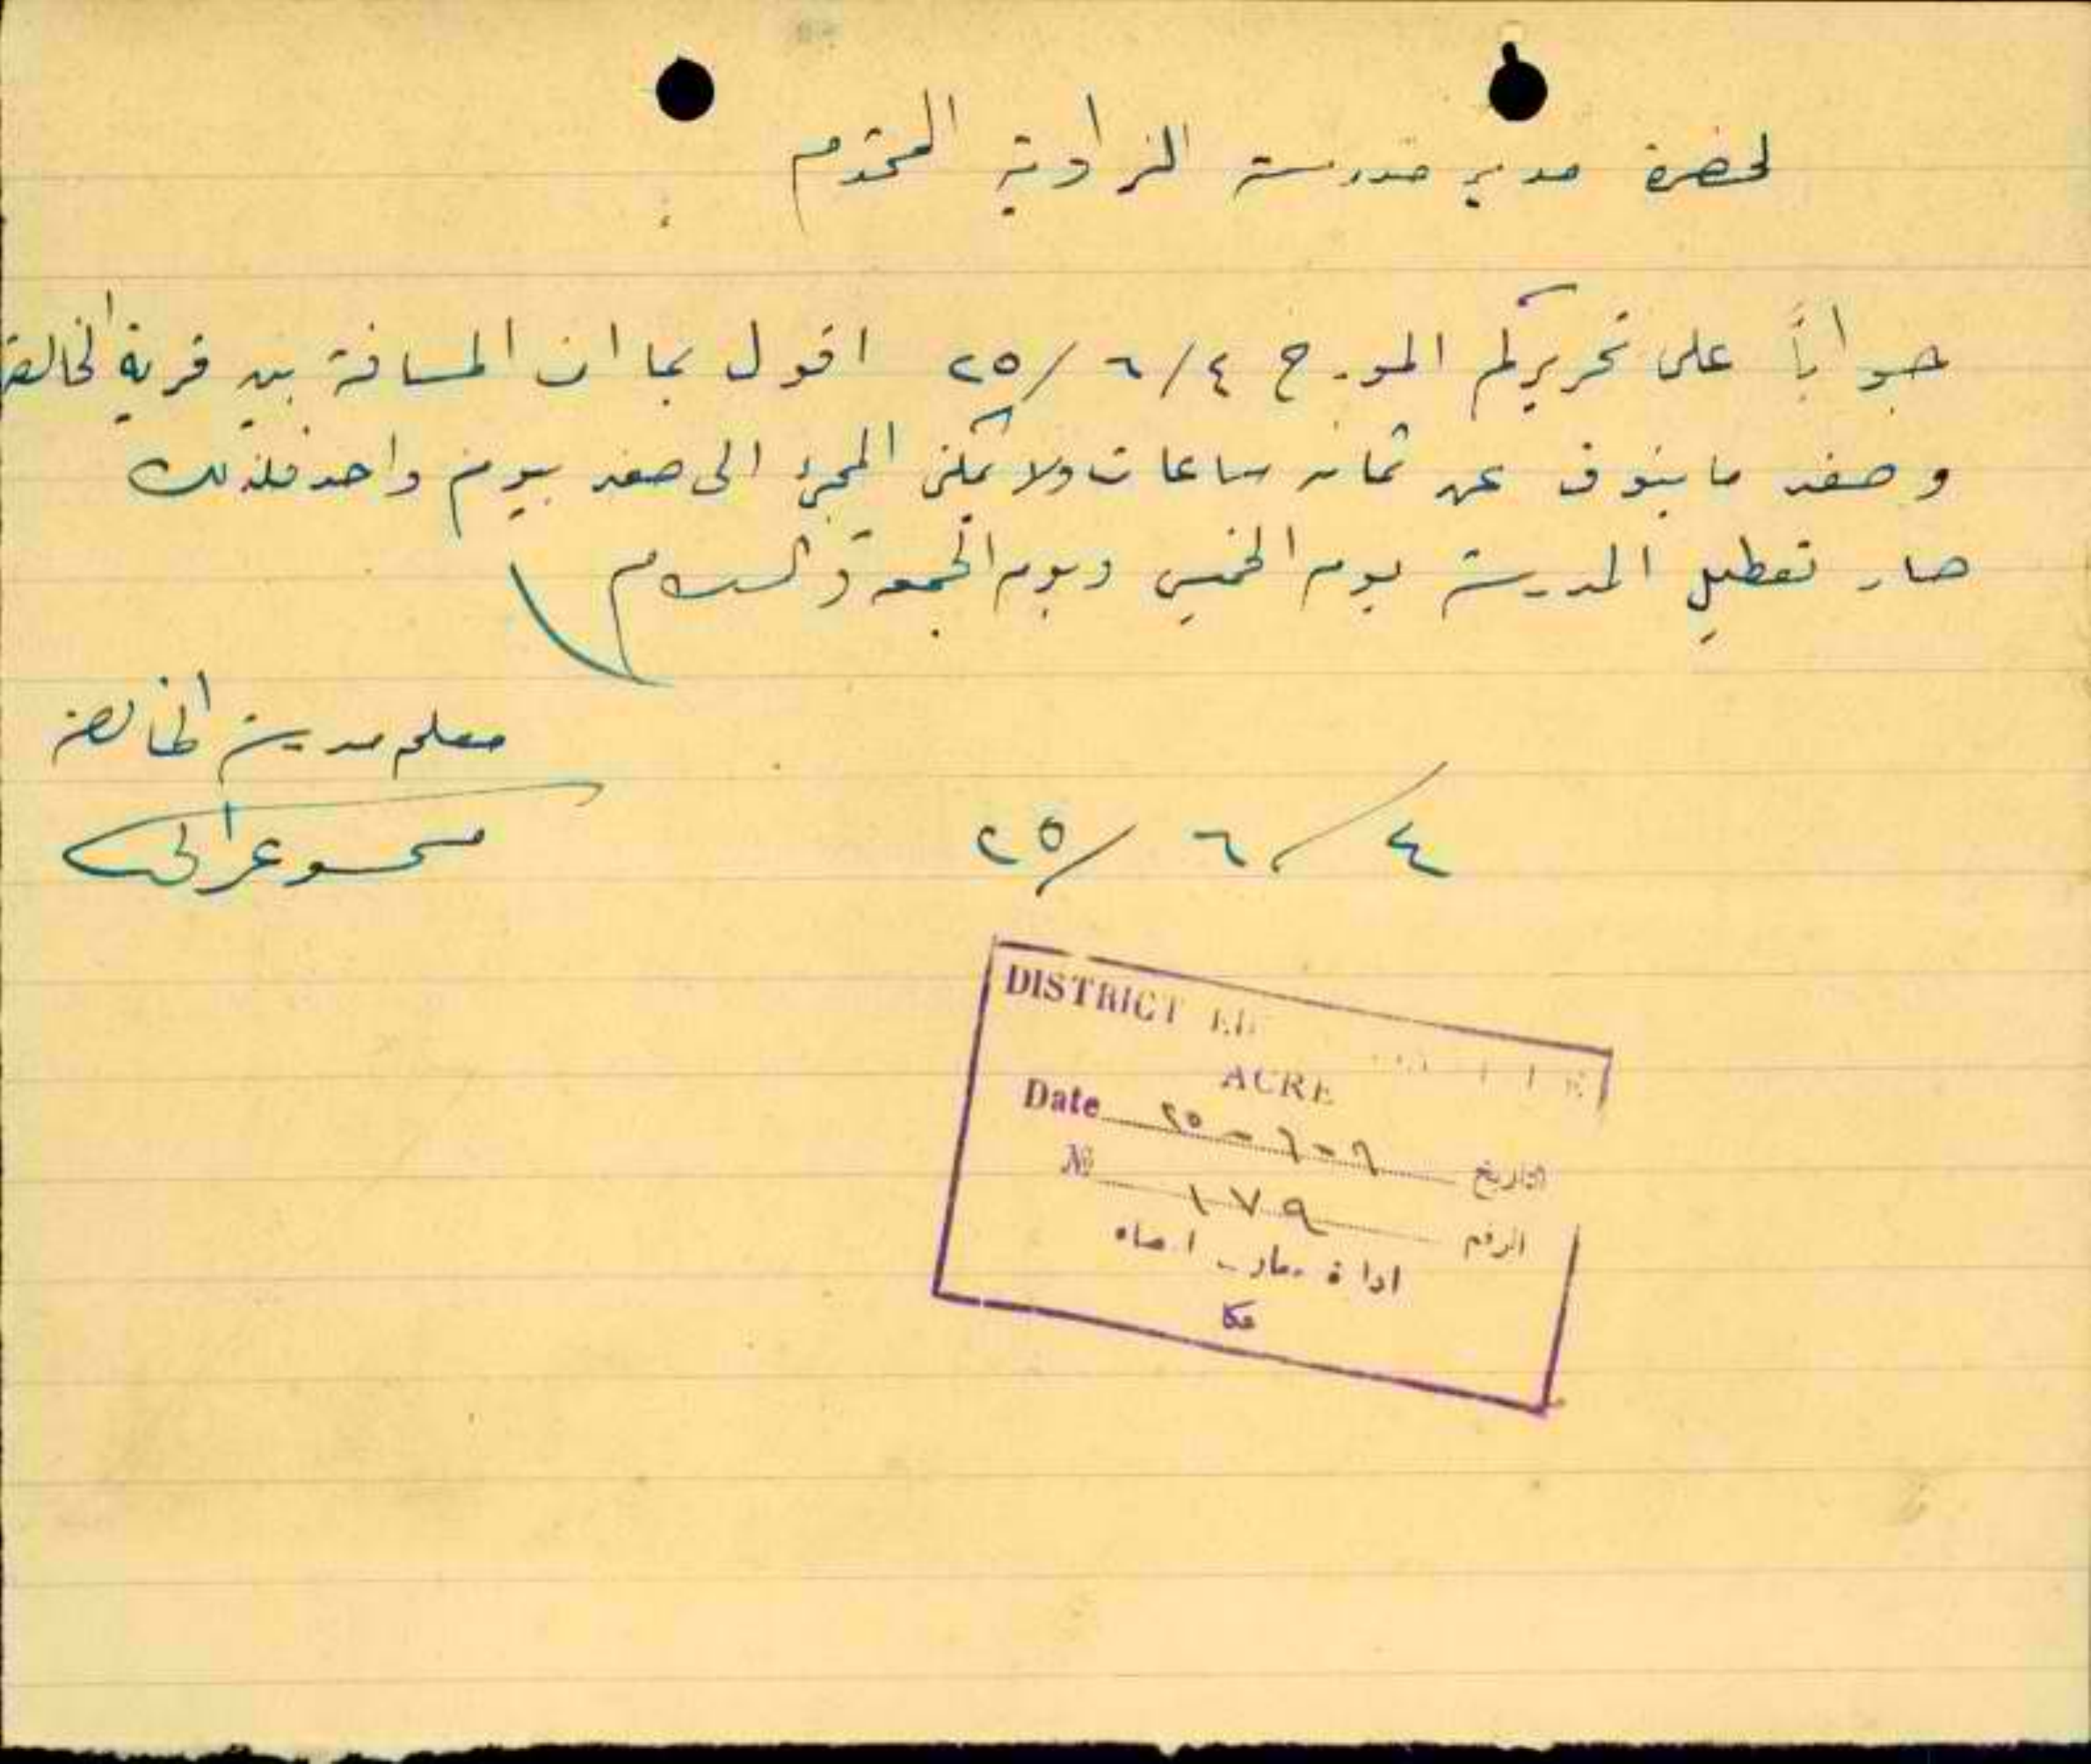 لحضرة مدير مدرسة الزاوية المحترم
جواباً على تحريركم المورخ ٤/٦/٢٥ اقول بما ان المسافة بين قرية الخالصة
وصفد ما ينوف عن ثمان ساعات ولا يمكن المجيء الى صفد بيوم واحد فلذلك
صار تعطيل المدرسة يوم الخميس ويوم الجمعة والسلام
معلم مدرسة الخالصة
٤/٦/٢٥
DISTRICT
ACRE
Date ٢٥-٦-٦ التاريخ
№ ١٧٩ الرقم
عكا